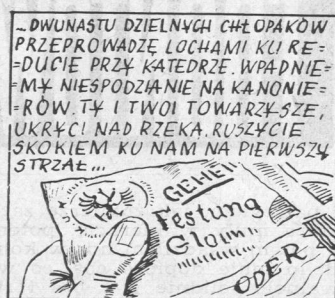 ...DWUNASTU DZIELNYCH CHŁOPAKÓW
PRZEPROWADZĘ LOCHAMI KU RE=
=DUCIE PRZY KATEDRZE. WPADNIE=
=MY NIESPODZIANIE NA KANONIE=
=RÓW. TY I TWOI TOWARZYSZE,
UKRYCI NAD RZEKĄ, RUSZYCIE
SKOKIEM KU NAM NA PIERWSZY
STRZAŁ...
GEHEI
Festung
ODER